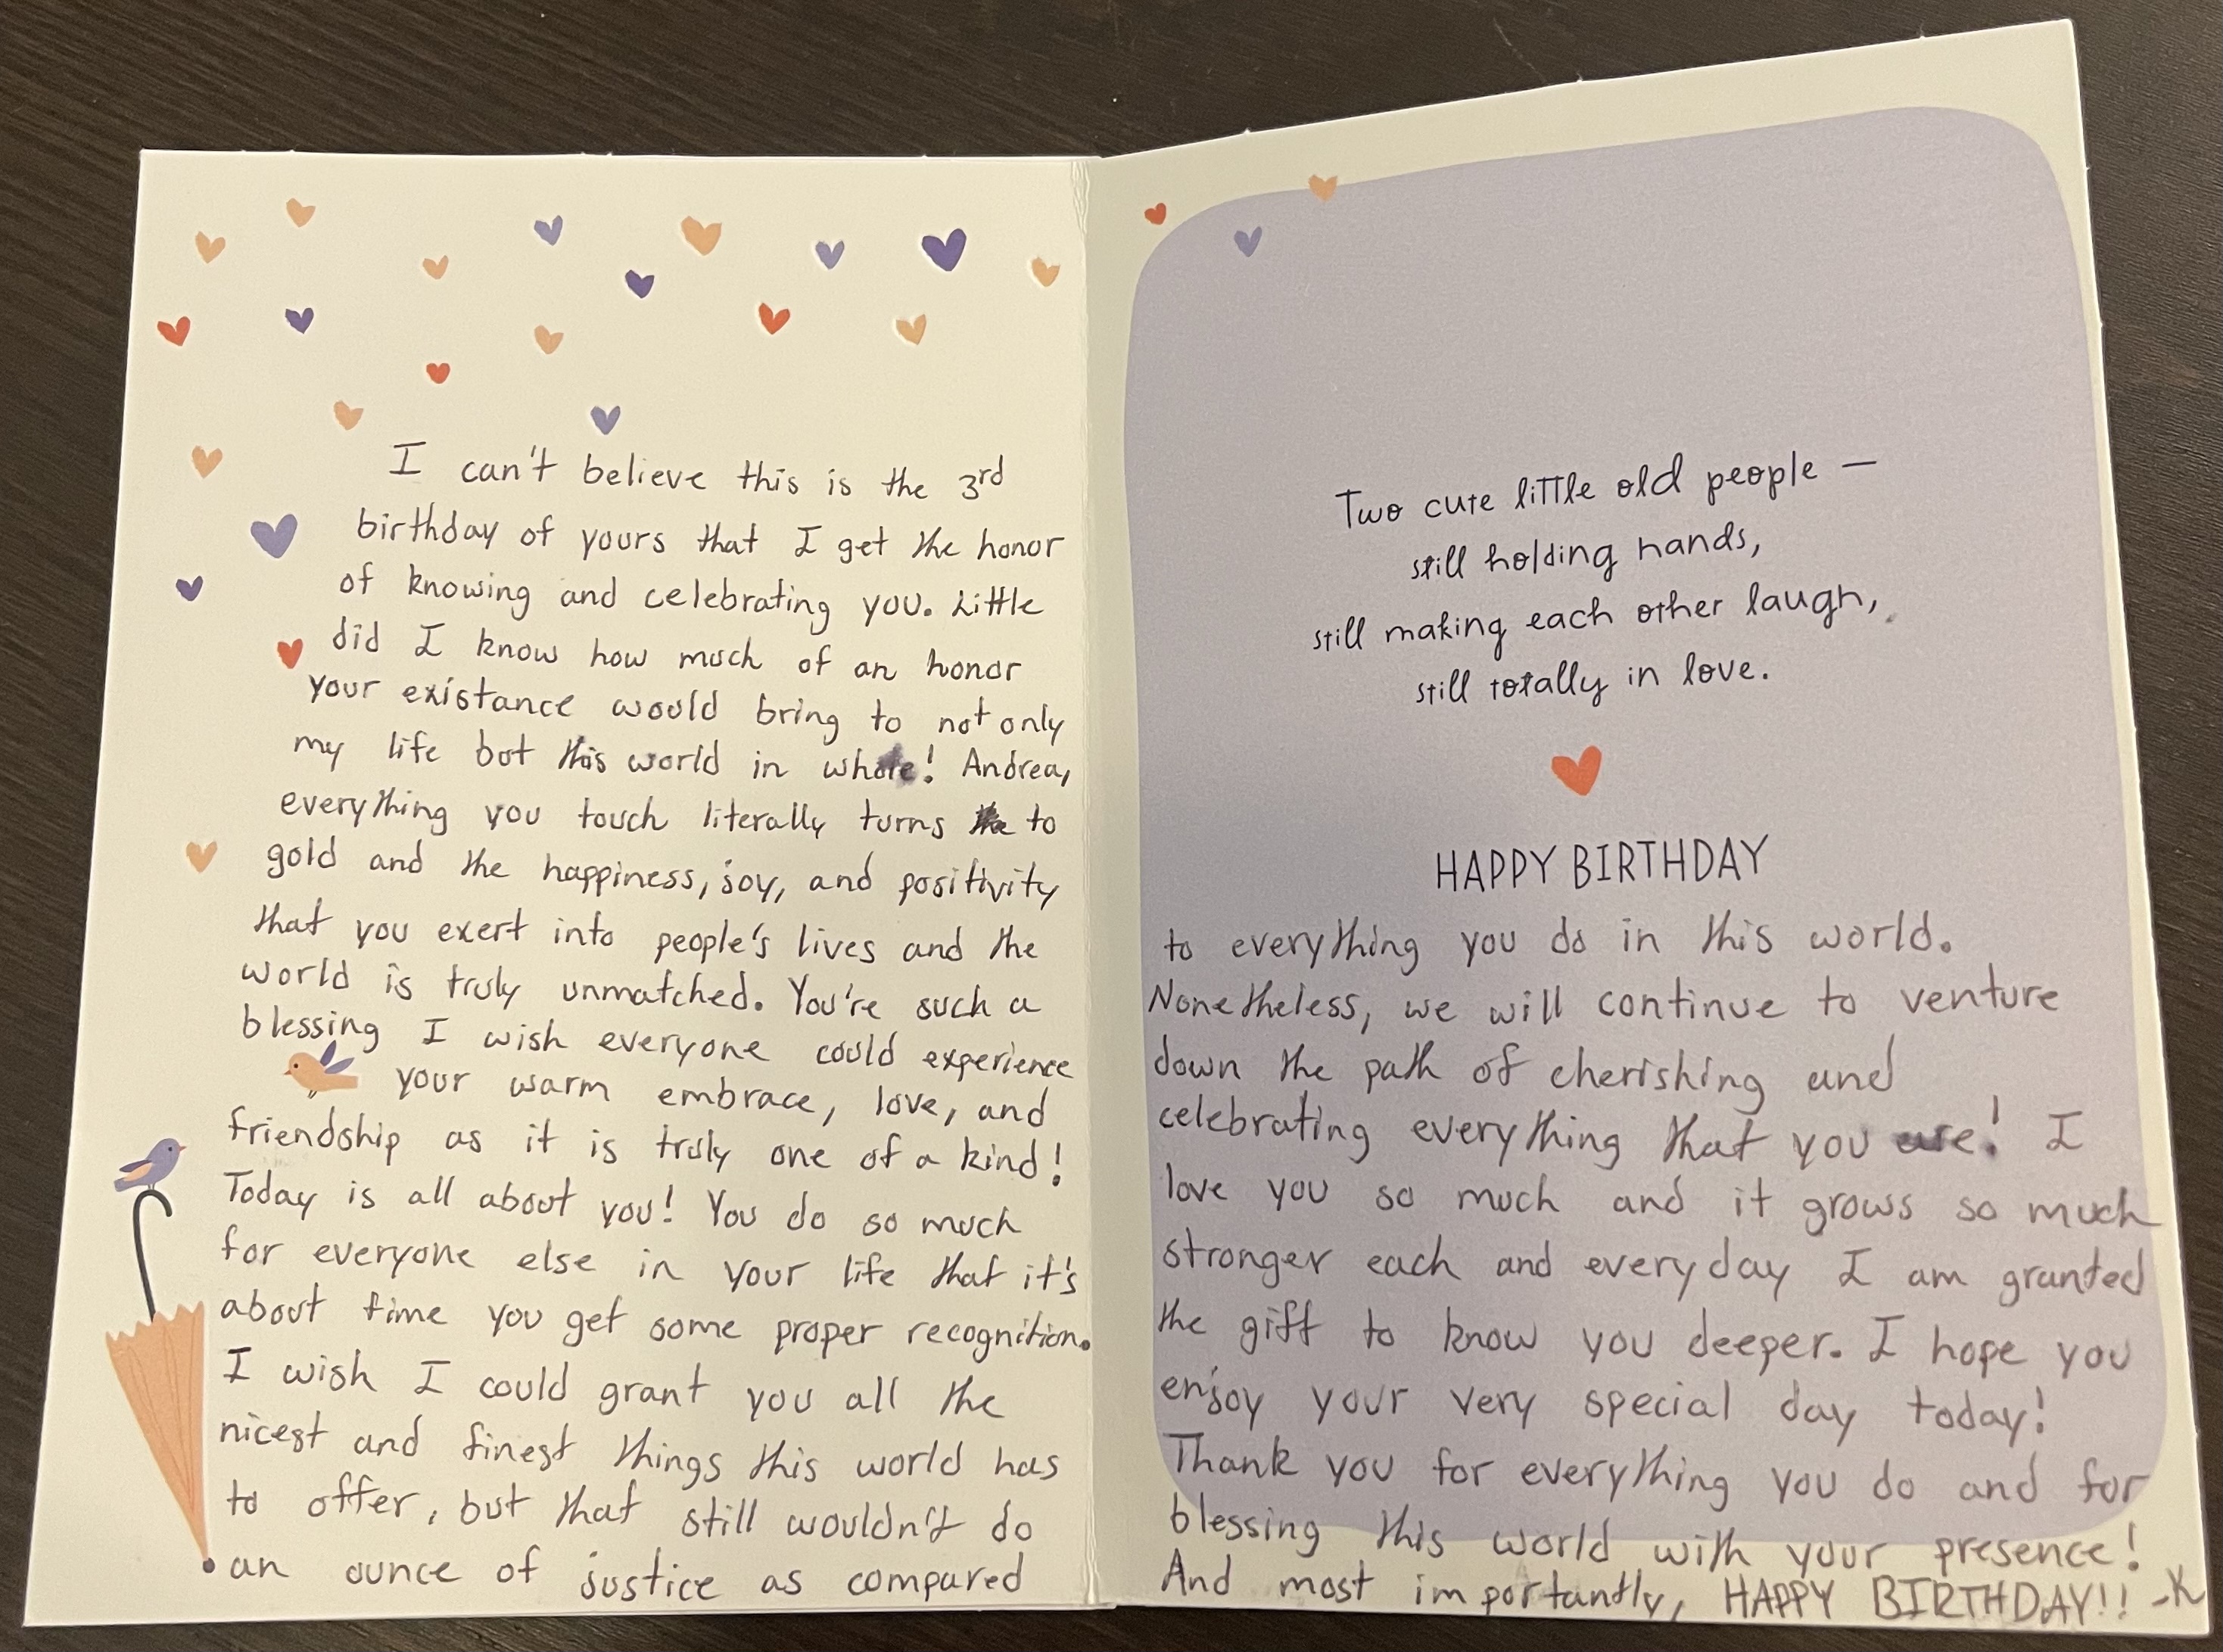 I can't believe this is the 3rd
birthday of yours that I get the honor
of knowing and celebrating you. Little
did I know how much of an honor
your existance would bring to not only
my life but this world in whole! Andrea,
everything you touch literally turns to
gold and the happiness, joy, and positivity
that you exert into people's lives and the
world is truly unmatched. You're such a
blessing I wish everyone could experience
your warm embrace, love, and
friendship as it is truly one of a kind!
Today is all about you! You do so much
for everyone else in your life that it's
about time you get some proper recognition.
I wish I could grant you all the
nicest and finest things this world has
to offer, but that still wouldn't do
an ounce of justice as compared
Two cute little old people —
still holding hands,
still making each other laugh,
still totally in love.
HAPPY BIRTHDAY
to everything you do in this world.
Nonetheless, we will continue to venture
down the path of cherishing and
celebrating everything that you are! I
love you so much and it grows so much
stronger each and everyday I am granted
the gift to know you deeper. I hope you
enjoy your very special day today!
Thank you for everything you do and for
blessing this world with your presence!
And most importantly, HAPPY BIRTHDAY!! -K